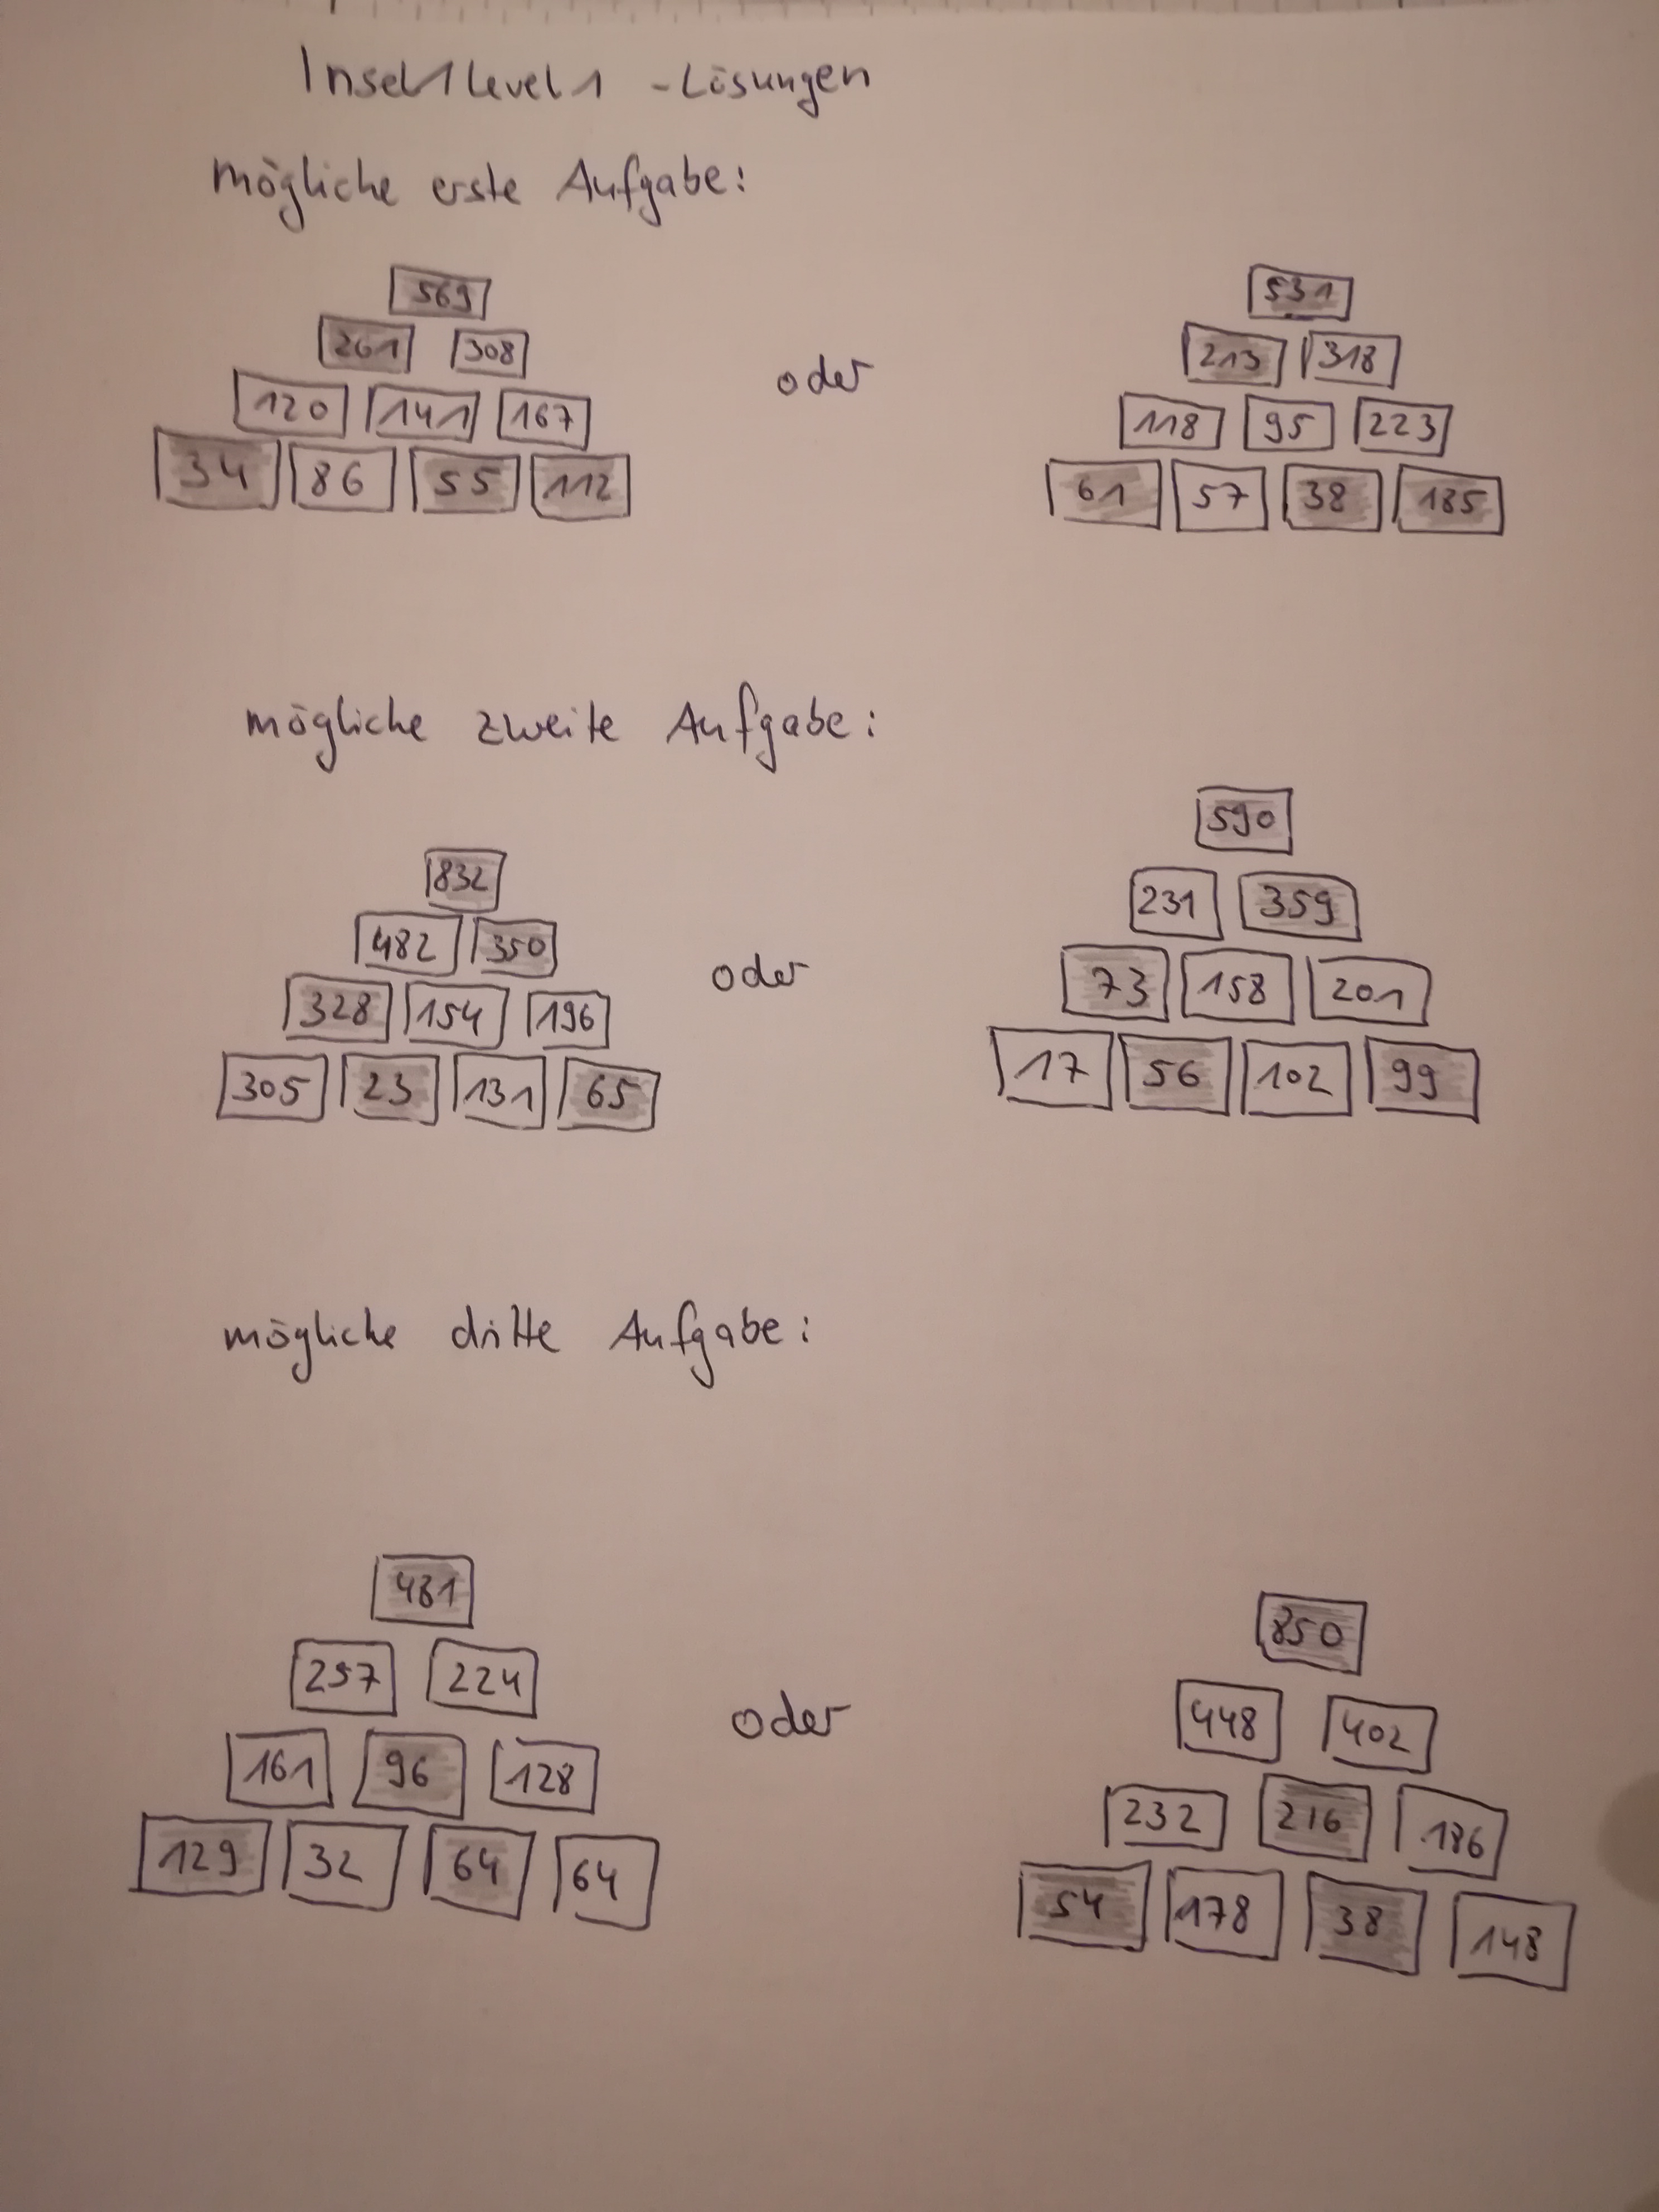 Insel1 Level1 - Lösungen
mögliche erste Aufgabe:
569
261 308
120 141 167
34 86 55 112
oder
531
213 318
118 95 223
61 57 38 185
mögliche zweite Aufgabe:
832
482 350
328 154 196
305 23 131 65
oder
590
231 359
73 158 201
17 56 102 99
mögliche dritte Aufgabe:
481
257 224
161 96 128
129 32 64 64
oder
850
448 402
232 216 186
54 178 38 148